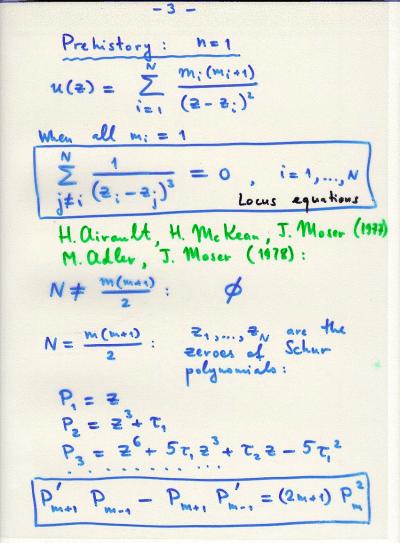 - 3 -
Prehistory: n=1
u(z) = \sum_{i=1}^{N} \frac{m_i(m_i+1)}{(z-z_i)^2}
When all m_i = 1
\sum_{j≠i}^{N} \frac{1}{(z_i-z_j)^3} = 0 , i=1,...,N
Locus equations
H. Airault, H. McKean, J. Moser (1977)
M. Adler, J. Moser (1978):
N ≠ \frac{m(m+1)}{2} : ∅
N = \frac{m(m+1)}{2} : z_1,...,z_N are the
zeroes of Schur
polynomials:
P_1 = z
P_2 = z^3 + τ_1
P_3 = z^6 + 5τ_1z^3 + τ_2z - 5τ_1^2
. . . . . . . . . . .
P'_{m+1} P_{m-1} - P_{m+1} P'_{m-1} = (2m+1) P_m^2